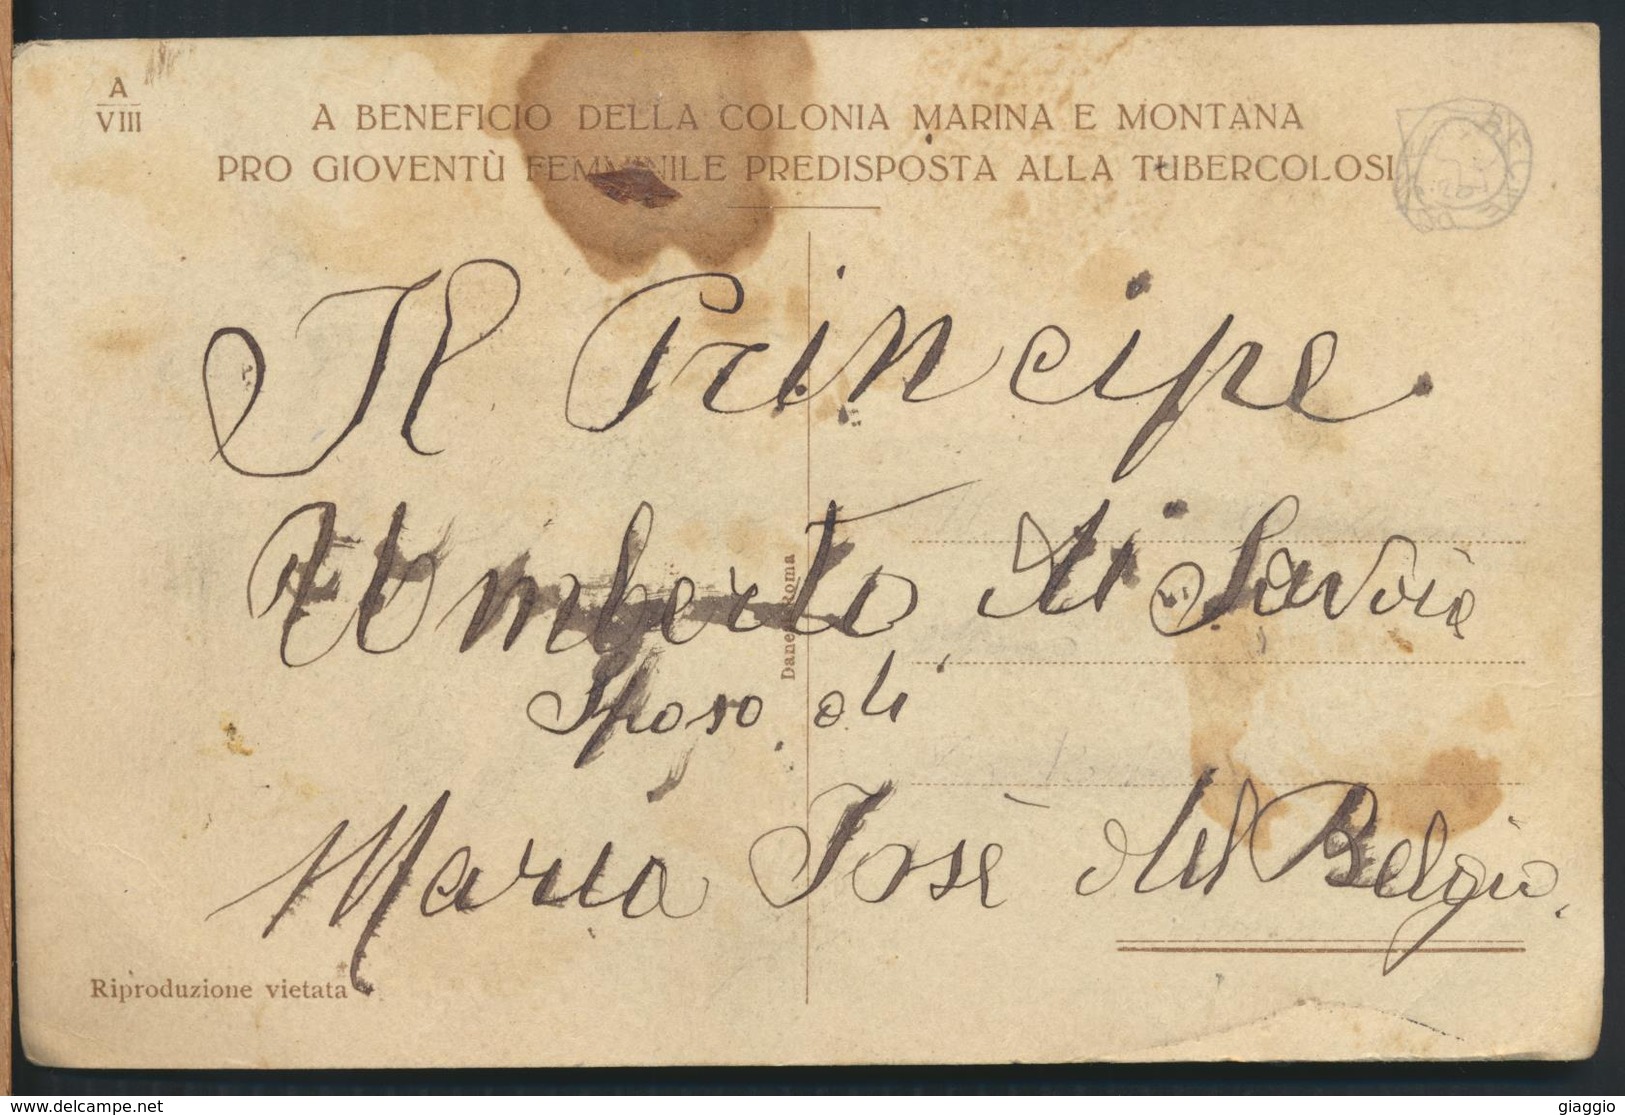 A
VIII
A BENEFICIO DELLA COLONIA MARINA E MONTANA
PRO GIOVENTÙ FEMMINILE PREDISPOSTA ALLA TUBERCOLOSI
Il Principe
Umberto di Savoia
Sposo di
Maria Josè del Belgio.
Roma
Riproduzione vietata
delcampe.net
giaggio